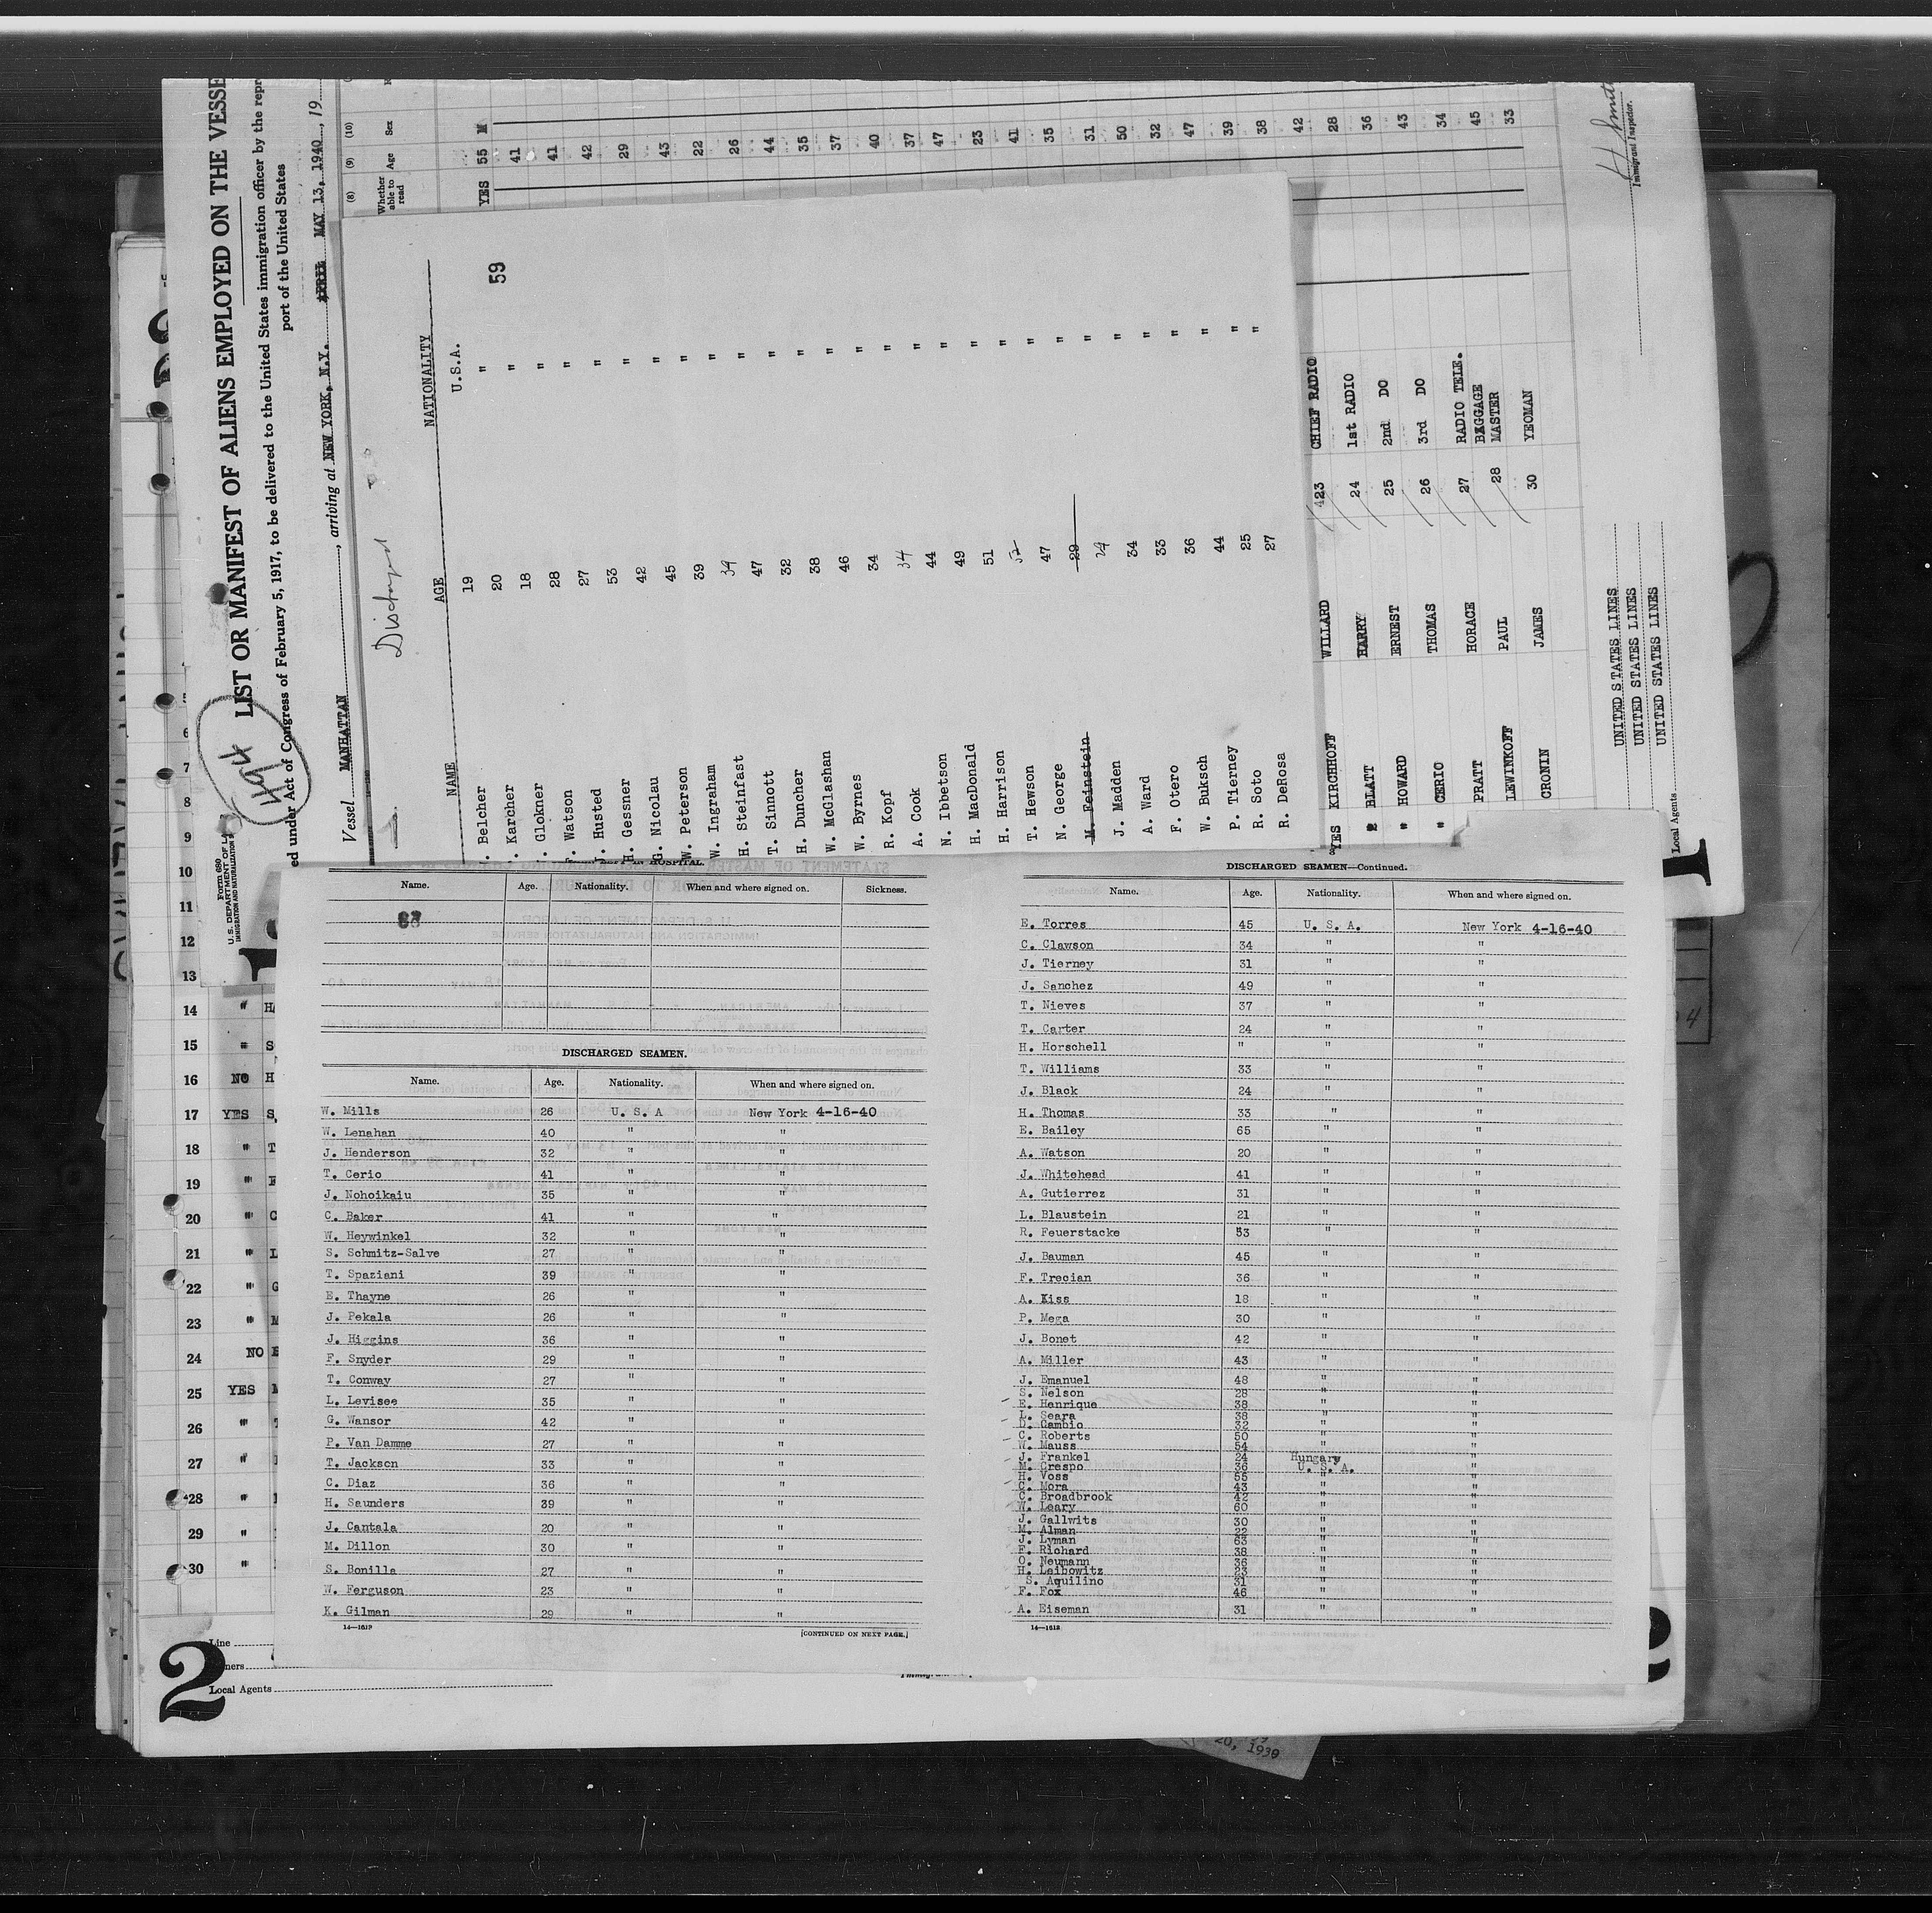 LIST OR MANIFEST OF ALIENS EMPLOYED ON THE VESSE
ed under Act of Congress of February 5, 1917, to be delivered to the United States immigration officer by the repr
port of the United States
Vessel MANHATTAN, arriving at NEW YORK, N.Y. MAY 13, 1940, 19
Form 680
U.S. DEPARTMENT OF L
IMMIGRATION AND NATURALIZATION
(8) (9) (10)
Whether able to read Age Sex
YES 55 M
41
41
42
29
43
22
26
44
35
37
40
37
47
23
41
35
31
50
32
47
39
38
42
28
36
43
34
45
33
Immigrant Inspector.
1
Discharged
NAME AGE NATIONALITY
59
. Belcher 19 U.S.A.
. Karcher 20 "
. Glokner 18 "
. Watson 28 "
J. Husted 27 "
H. Gessner 53 "
G. Nicolau 42 "
W. Peterson 45 "
W. Ingraham 39 "
H. Steinfast 39 "
T. Sinnott 47 "
H. Duncher 32 "
W. McGlashan 38 "
W. Byrnes 46 "
R. Kopf 34 "
A. Cook 34 "
N. Ibbetson 44 "
H. MacDonald 49 "
H. Harrison 51 "
T. Hewson 52 "
N. George 47 "
M. Feinstein 29 "
J. Madden 29 "
A. Ward 34 "
F. Otero 33 "
W. Buksch 36 "
P. Tierney 44 "
R. Soto 25 "
R. DeRosa 27 "
YES KIRCHHOFF WILLARD 423 CHIEF RADIO
" BLATT HARRY 24 1st RADIO
" HOWARD ERNEST 25 2nd DO
" CERIO THOMAS 26 3rd DO
PRATT HORACE 27 RADIO TELE.
LEWINKOFF PAUL 28 BAGGAGE MASTER
CRONIN JAMES 30 YEOMAN
UNITED STATES LINES
UNITED STATES LINES
UNITED STATES LINES
Local Agents
1
HOSPITAL.
Name. Age. Nationality. When and where signed on. Sickness.
DISCHARGED SEAMEN.
Name. Age. Nationality. When and where signed on.
W. Mills 26 U. S. A New York 4-16-40
W. Lenahan 40 " "
J. Henderson 32 " "
T. Cerio 41 " "
J. Nohoikaiu 35 " "
C. Baker 41 " "
W. Heywinkel 32 " "
S. Schmitz-Salve 27 " "
T. Spaziani 39 " "
E. Thayne 26 " "
J. Pekala 26 " "
J. Higgins 36 " "
F. Snyder 29 " "
T. Conway 27 " "
L. Levisee 35 " "
G. Wansor 42 " "
P. Van Damme 27 " "
T. Jackson 33 " "
C. Diaz 36 " "
H. Saunders 39 " "
J. Cantala 20 " "
M. Dillon 30 " "
S. Bonilla 27 " "
W. Ferguson 23 " "
K. Gilman 29 " "
14—1613
[CONTINUED ON NEXT PAGE.]
DISCHARGED SEAMEN—Continued.
Name. Age. Nationality. When and where signed on.
E. Torres 45 U. S. A. New York 4-16-40
C. Clawson 34 " "
J. Tierney 31 " "
J. Sanchez 49 " "
T. Nieves 37 " "
T. Carter 24 " "
H. Horschell " " "
T. Williams 33 " "
J. Black 24 " "
H. Thomas 33 " "
E. Bailey 65 " "
A. Watson 20 " "
J. Whitehead 41 " "
A. Gutierrez 31 " "
L. Blaustein 21 " "
R. Feuerstacke 53 " "
J. Bauman 45 " "
F. Trecian 36 " "
A. Kiss 18 " "
P. Mega 30 " "
J. Bonet 42 " "
A. Miller 43 " "
J. Emanuel 48 " "
S. Nelson 28 " "
E. Henrique 38 " "
L. Seara 38 " "
D. Cambio 32 " "
C. Roberts 50 " "
W. Mauss 54 " "
J. Frankel 24 Hungary "
M. Crespo 36 U. S. A. "
H. Voss 55 " "
C. Mora 43 " "
C. Broadbrook 42 " "
W. Leary 60 " "
J. Gallwits 30 " "
M. Alman 22 " "
J. Lyman 63 " "
F. Richard 38 " "
O. Neumann 36 " "
H. Leibowitz 23 " "
S. Aquilino 31 " "
F. Fox 46 " "
A. Eiseman 31 " "
14—1613
6
7
8
9
10
11
12
13
14 " H
15 " S
16 NO H
17 YES S
18 " T
19 "
20 " C
21 " L
22 " G
23 " M
24 NO
25 YES
26 "
27 "
28 "
29 "
30 "
Line
ners
Local Agents
2
20, 1939